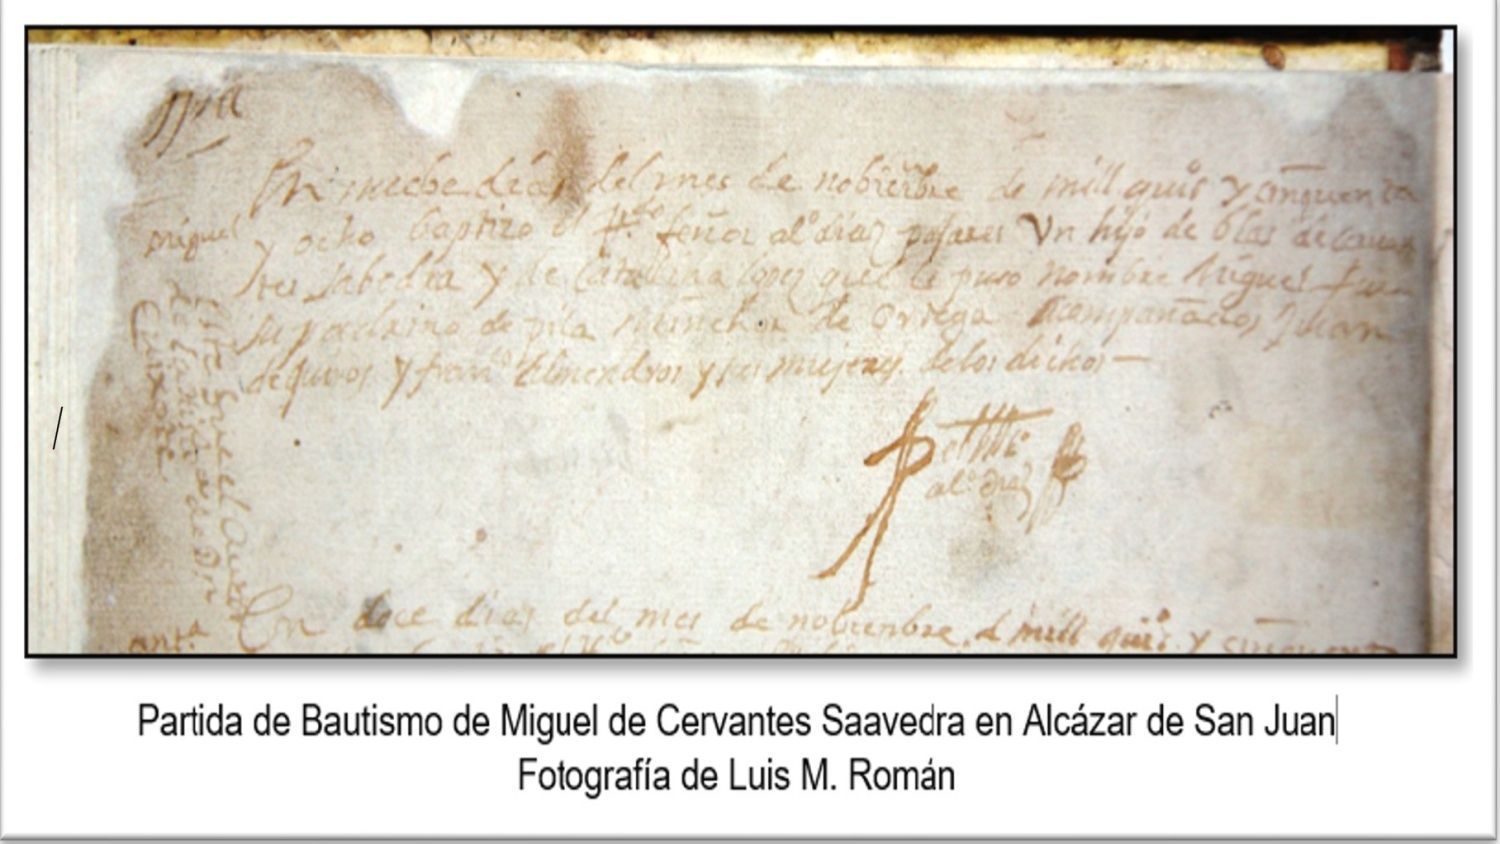 Miguel
En nuebe dias del mes de nobiẽbre de mill quiºs y cinquenta
y ocho baptizo el Rdo señor alº diaz pajares Vn hijo de blas de cervan
tes sabedra y de Catalina lopez quel le puso nombre Miguel fue
su padrino de pila Melchor de Ortega acompañados Juan
de quiros y franco Almendros y sus mujeres de los dichos
alº diaz
Este fue el autor
de la historia de Dn
Quixote
En doce dias del mes de nobienbre de mill quiºs y cinquenta
Partida de Bautismo de Miguel de Cervantes Saavedra en Alcázar de San Juan
Fotografía de Luis M. Román